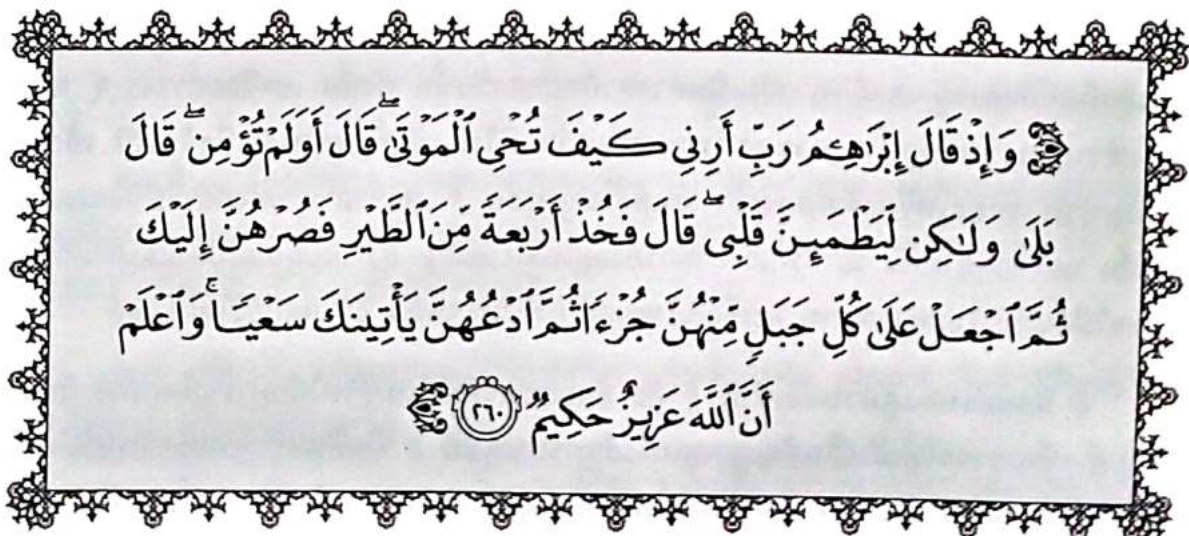 ﴿وَإِذْ قَالَ إِبْرَٰهِـۧمُ رَبِّ أَرِنِى كَيْفَ تُحْىِ ٱلْمَوْتَىٰ ۖ قَالَ أَوَلَمْ تُؤْمِن ۖ قَالَ
بَلَىٰ وَلَـٰكِن لِّيَطْمَئِنَّ قَلْبِى ۖ قَالَ فَخُذْ أَرْبَعَةً مِّنَ ٱلطَّيْرِ فَصُرْهُنَّ إِلَيْكَ
ثُمَّ ٱجْعَلْ عَلَىٰ كُلِّ جَبَلٍ مِّنْهُنَّ جُزْءًا ثُمَّ ٱدْعُهُنَّ يَأْتِينَكَ سَعْيًا ۚ وَٱعْلَمْ
أَنَّ ٱللَّهَ عَزِيزٌ حَكِيمٌ ٢٦٠﴾